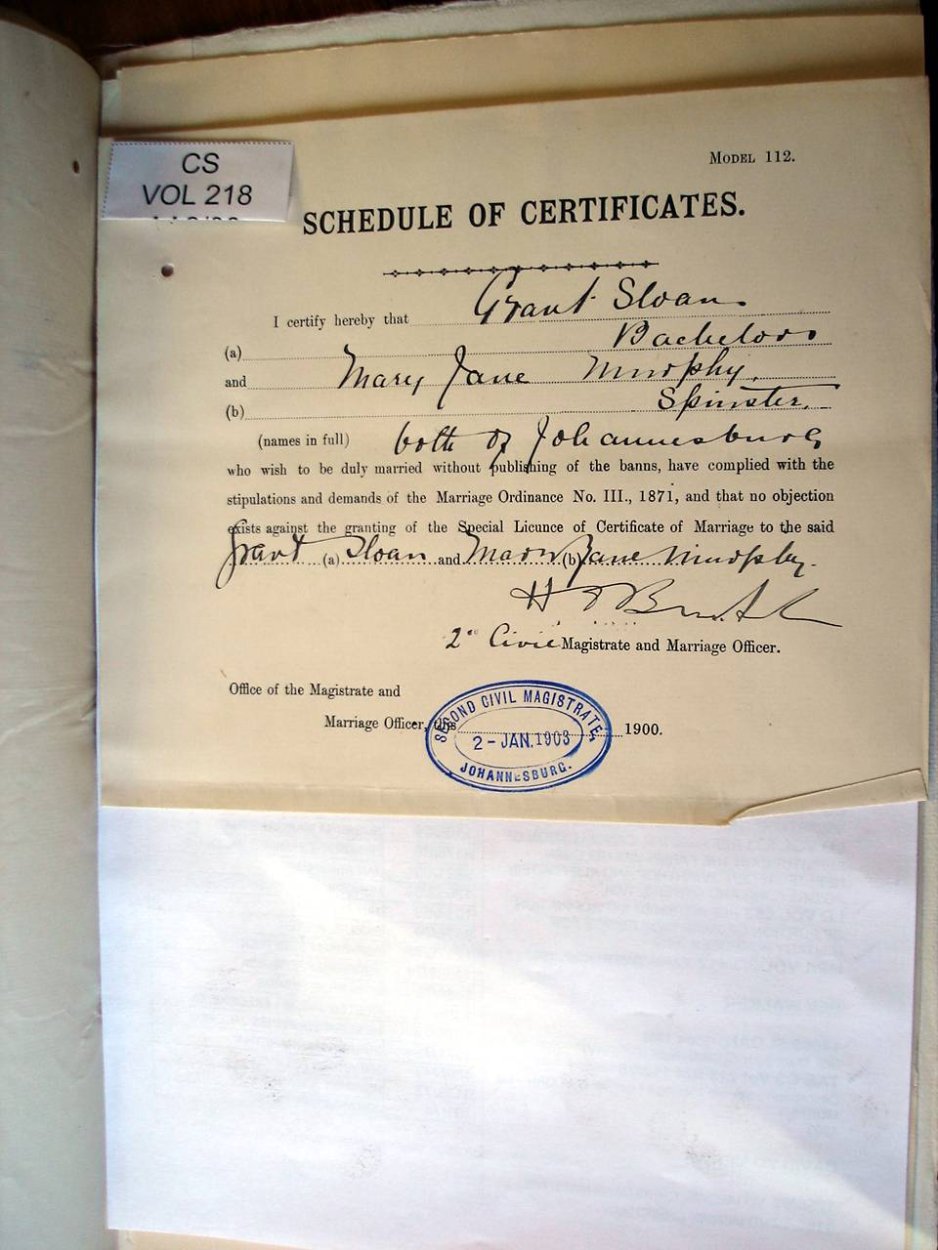 CS
VOL 218
MODEL 112.
SCHEDULE OF CERTIFICATES.
I certify hereby that Grant Sloan
(a) Bachelor
and Mary Jane Murphy.
(b) Spinster.
(names in full) both of Johannesburg
who wish to be duly married without publishing of the banns, have complied with the
stipulations and demands of the Marriage Ordinance No. III., 1871, and that no objection
exists against the granting of the Special Licunce of Certificate of Marriage to the said
Grant (a) Sloan and Mary (b) Jane Murphy.
2nd Civil Magistrate and Marriage Officer.
Office of the Magistrate and
Marriage Officer, this 1900.
SECOND CIVIL MAGISTRATE,
2-JAN.1903
JOHANNESBURG.